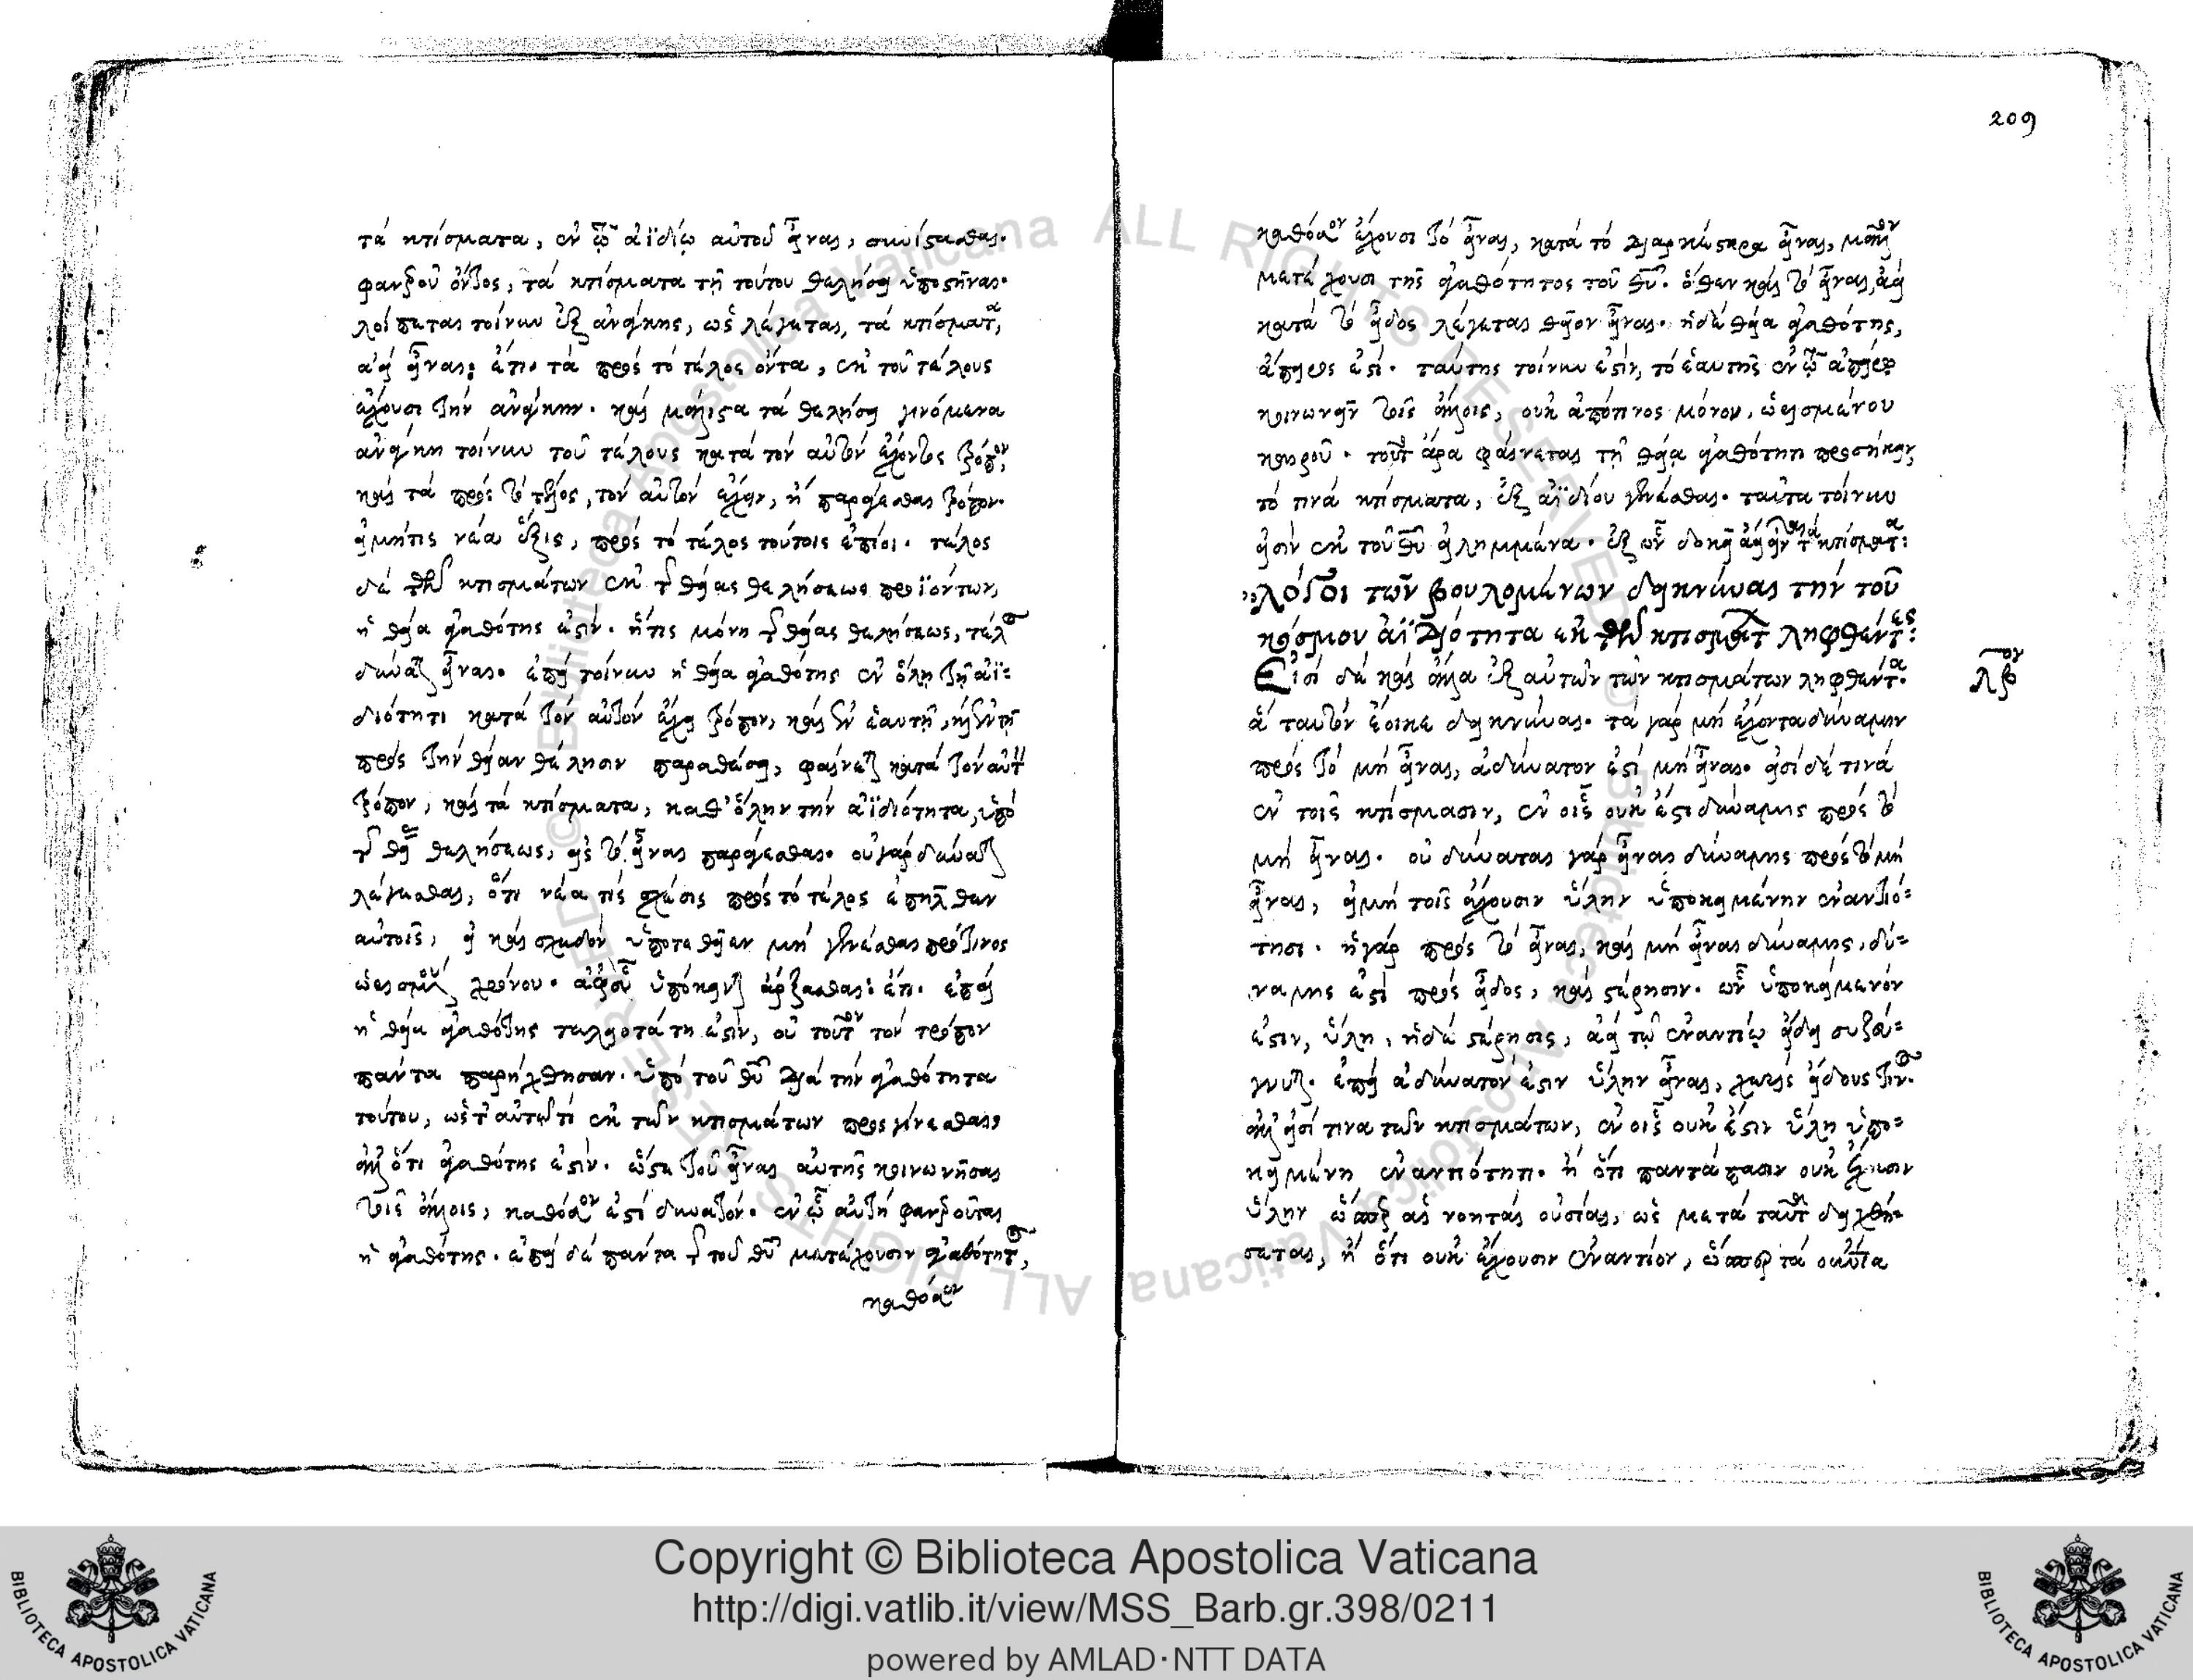 τὰ κτίσματα, ἐν τῷ ἀϊδίῳ αὐτοῦ εἶναι, συνίστασθαι.
φανεροῦ ὄντος, τὰ κτίσματα τῇ τούτου θελήσει ὑποστῆναι.
λείπεται τοίνυν ἐξ ἀνάγκης, ὡς λέγεται, τὰ κτίσματα,
ἀεὶ εἶναι: ἔτι. τὰ πρὸς τὸ τέλος ὄντα, ἐκ τοῦ τέλους
ἔχουσι τὴν ἀνάγκην. καὶ μάλιστα τὰ θελήσει γινόμενα
ἀνάγκη τοίνυν τοῦ τέλους κατὰ τὸν αὐτὸν ἔχοντος τρόπον,
καὶ τὰ πρὸς τὸ τέλος, τὸν αὐτὸν ἔχειν, ἢ παράγεσθαι τρόπον.
εἰ μήτις νέα ἕξις, πρὸς τὸ τέλος τούτοις ἐπίοι. τέλος
δὲ τῶν κτισμάτων ἐκ τῆς θείας θελήσεως προϊόντων,
ἡ θεία ἀγαθότης ἐστίν. ἥτις μόνη τῆς θείας θελήσεως, τέλος
δύναται εἶναι. ἐπεὶ τοίνυν ἡ θεία ἀγαθότης ἐν ὅλῃ τῇ ἀϊ=
διότητι κατὰ τὸν αὐτὸν ἔχει τρόπον, καὶ ἐν ἑαυτῇ, καὶ ἐν τῇ
πρὸς τὴν θείαν θέλησιν παραθέσει, φαίνεται κατὰ τὸν αὐτὸν
τρόπον, καὶ τὰ κτίσματα, καθ' ὅλην τὴν ἀϊδιότητα, ὑπὸ
τῆς θείας θελήσεως, εἰς τὸ εἶναι παράγεσθαι. οὐ γὰρ δύναται
λέγεσθαι, ὅτι νέα τίς σχέσις πρὸς τὸ τέλος ἐπῆλθεν
αὐτοῖς, εἰ καὶ σχεδὸν ὑποτεθεῖεν μὴ γενέσθαι πρό τινος
ὡρισμένου χρόνου. ἀφ' οὗ ὑπόκεινται ἄρξασθαι: ἔτι. ἐπεὶ
ἡ θεία ἀγαθότης τελειοτάτη ἐστὶν, οὐ τοῦτον τὸν τρόπον
πάντα παρήχθησαν. ὑπὸ τοῦ θυ διὰ τὴν ἀγαθότητα
τούτου, ὥστ' αὐτῷ τὶ ἐκ τῶν κτισμάτων προσγίνεσθαι,
ἀλλ' ὅτι ἀγαθότης ἐστίν. ὥστε τοῦ εἶναι αὐτῆς κοινωνῆσαι
τοῖς ἄλλοις, καθόσον ἐστὶ δυνατόν. ἐν ᾧ αὐτὴ φανεροῦται
ἡ ἀγαθότης. ἐπεὶ δὲ πάντα τῆς τοῦ θυ μετέχουσιν ἀγαθότητος,
καθόσον
209
καθόσον ἔχουσι τὸ εἶναι, κατὰ τὸ διαρκέστερα εἶναι, μᾶλλον
μετέχουσι τῆς ἀγαθότητος τοῦ θυ. ὅθεν καὶ τὸ εἶναι, ἀεὶ
κατὰ τὸ εἶδος λέγεται θεῖον εἶναι. ἡ δὲ θεία ἀγαθότης,
ἄπειρός ἐστι. ταύτης τοίνυν ἐστὶν, τὸ ἑαυτῆς ἐν τῷ ἀπείρῳ
κοινωνεῖν τοῖς ἄλλοις, οὐκ ἀπό τινος μόνον, ὡρισμένου
καιροῦ. τοῦτ' ἄρα φαίνεται τῇ θείᾳ ἀγαθότητι προσήκειν,
τὸ τινὰ κτίσματα, ἐξ ἀϊδίου γενέσθαι. ταῦτα τοίνυν
εἰσὶν ἐκ τοῦ θυ εἰλημμένα. ἐξ ὧν δοκεῖ ἀεὶ εἶναι τὰ κτίσματα:
λόγοι τῶν βουλομένων δεικνύναι τὴν τοῦ
κόσμου ἀϊδιότητα ἐκ τῶν κτισμάτων ληφθέντες:
Εἰσὶ δὲ καὶ ἄλλα ἐξ αὐτῶν τῶν κτισμάτων ληφθέντα.
λβον
ἃ ταυτὸν ἔοικε δεικνύναι. τὰ γὰρ μὴ ἔχοντα δύναμιν
πρὸς τὸ μὴ εἶναι, ἀδύνατον ἐστὶ μὴ εἶναι. εἰσὶ δέ τινὰ
ἐν τοῖς κτίσμασιν, ἐν οἷς οὐκ ἔστι δύναμις πρὸς τὸ
μὴ εἶναι. οὐ δύναται γὰρ εἶναι δύναμις πρὸς τὸ μὴ
εἶναι, εἰ μὴ τοῖς ἔχουσιν ὕλην ὑποκειμένην ἐναντιό=
τησι. ἡ γὰρ πρὸς τὸ εἶναι, καὶ μὴ εἶναι δύναμις, δύ=
ναμις ἐστὶ πρὸς εἶδος, καὶ στέρησιν. ὧν ὑποκείμενόν
ἐστιν, ὕλη. ἡ δὲ στέρησις, ἀεὶ τῷ ἐναντίῳ εἴδει συζεύ=
γνυται. ἐπεὶ ἀδύνατόν ἐστιν ὕλην εἶναι, χωρὶς εἴδους τινός.
ἀλλ' εἰσί τινα τῶν κτισμάτων, ἐν οἷς οὐκ ἔστιν ὕλη ὑπο=
κειμένη ἐναντιότητι. ἢ ὅτι παντάπασιν οὐκ ἔχουσιν
ὕλην ὥσπερ αἱ νοηταὶ οὐσίαι, ὡς μετὰ ταῦτα δειχθή=
σεται, ἢ ὅτι οὐκ ἔχουσιν ἐναντίον, ὥσπερ τὰ οὐράνια
Copyright © Biblioteca Apostolica Vaticana
http://digi.vatlib.it/view/MSS_Barb.gr.398/0211
powered by AMLAD·NTT DATA
BIBLIOTECA APOSTOLICA VATICANA
BIBLIOTECA APOSTOLICA VATICANA